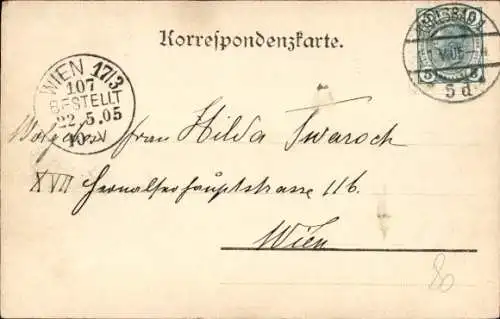 Korrespondenzkarte.
5 5
5 d
WIEN 17/3
107
BESTELLT
22.5.05
10-V
frau Hilda Twaroch
XVII Hernalserhauptstrasse 116.
Wien
80